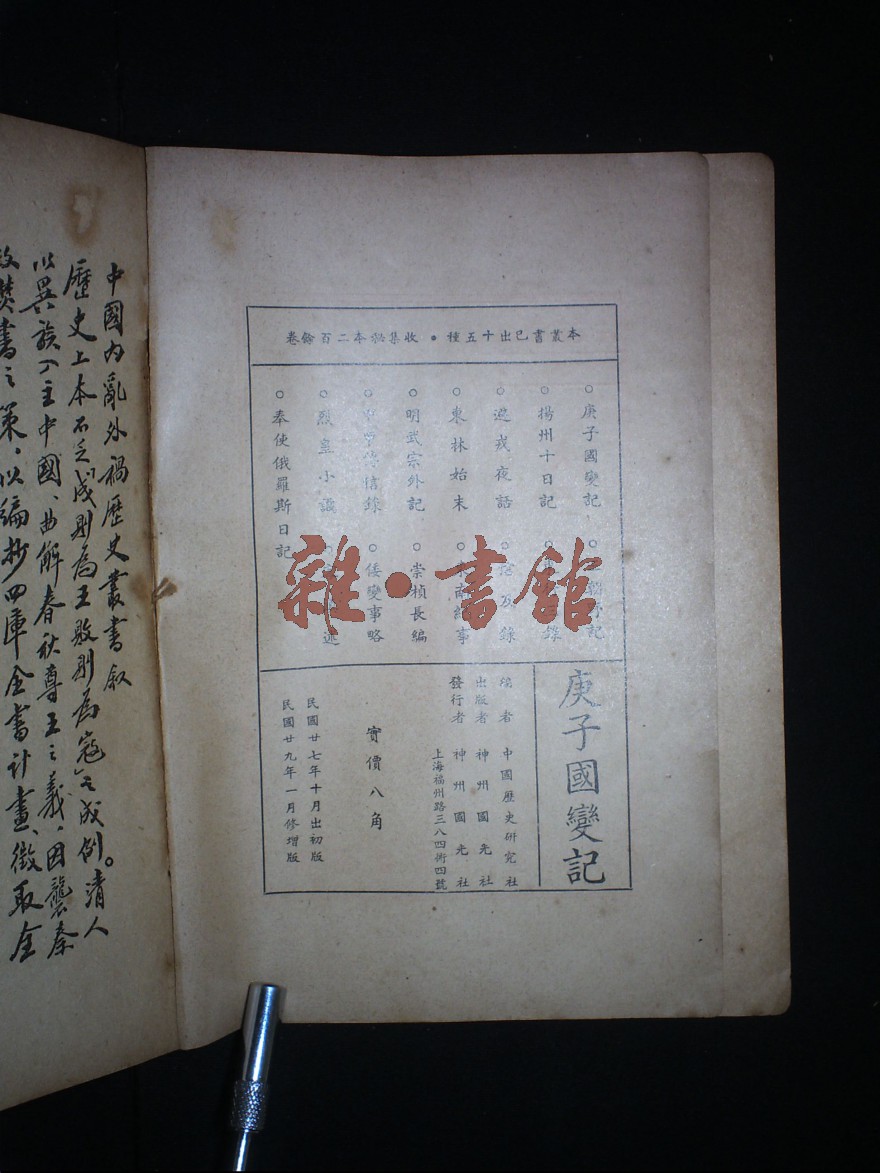 本叢書已出十五種•收集祕本二百餘卷
○庚子國變記
○揚州十日記
○避戎夜話
○東林始末
○明武宗外記
○烈皇小識
○奉使俄羅斯日記
○崇禎長編
○倭變事略
雜•書館
庚子國變記
編者 中國歷史研究社
出版者 神州國光社
發行者 神州國光社
上海福州路三八四衖四號
實價八角
民國廿七年十月出初版
民國廿九年一月修增版
中國內亂外禍歷史叢書敘
歷史上本不乏「成則為王敗則為寇」之成例。清人
以異族入主中國、曲解春秋尊王之義，因襲秦
焚書之策，以編抄四庫全書計畫、徵取全